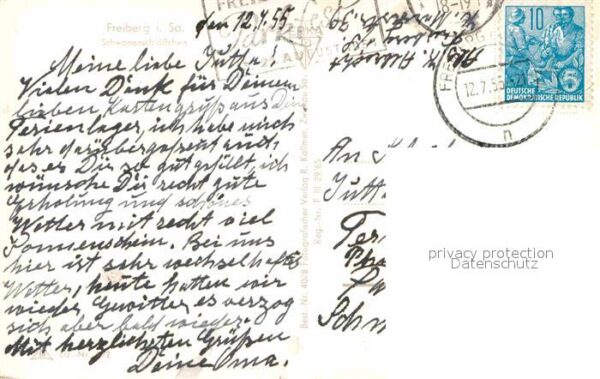 Freiberg i. Sa.
Schwanenschlößchen
den 12.7.55
Meine liebe Jutta!
Vielen Dank für Deinen
lieben Kartengruß aus dem
Ferienlager, ich habe mich
sehr darüber gefreut auch,
das es Dir so gut gefällt, ich
wünsche Dir recht gute
Erholung und schönes
Wetter mit recht viel
Sonnenschein. Bei uns
hier ist sehr wechselhaftes
Wetter, heute hatten wir
wieder Gewitter, es verzog
sich aber bald wieder.
Mit herzlichsten Grüßen
Deine Oma.
Best. Nr. 40/28 Fotografischer Verlag R. Kallmer, Zwickau Sa.
Reg.-Nr. F III 29/55
An
Jutta
10
5
DEUTSCHE
DEMOKRATISCHE REPUBLIK
12.7.55
n
privacy protection
Datenschutz